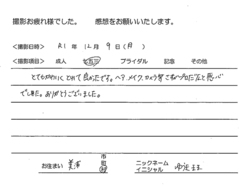 撮影お疲れ様でした。 感想をお願いいたします。
<撮影日時> R1 年 12 月 9 日 (月)
<撮影項目> 成人 七五三 ブライダル 記念 その他
とてもかわいくとれて良かったです。ヘア メイク、
でした。ありがとうございました。
お住まい 市 町 村 ニックネーム イニシャル まま